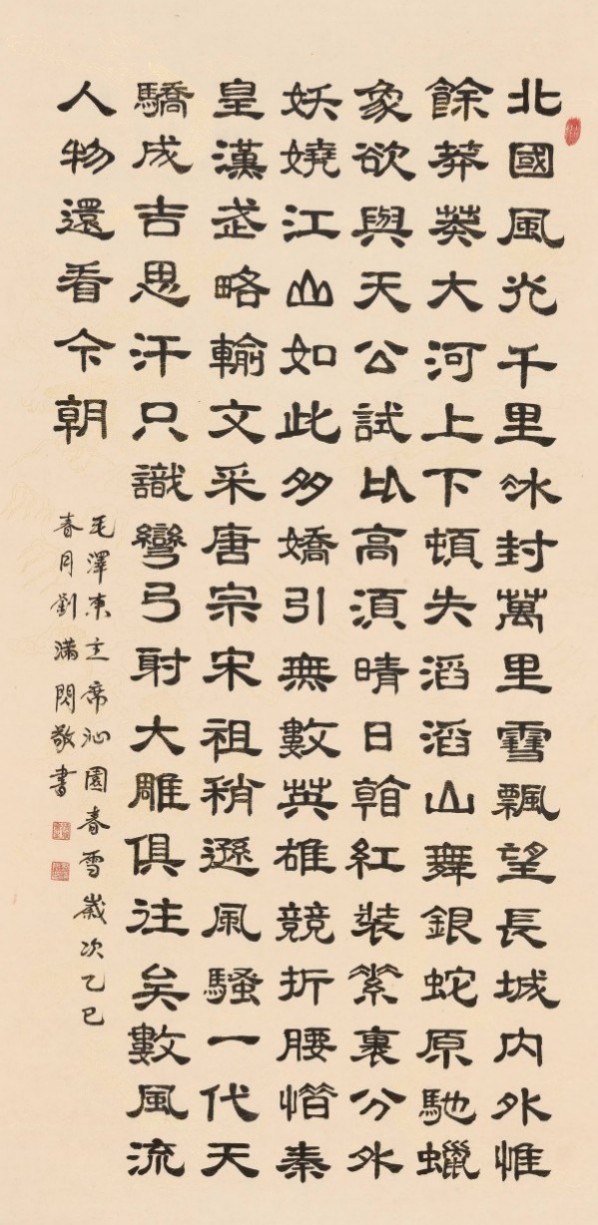 北國風光千里冰封萬里雪飄望長城內外惟
餘莽莽大河上下頓失滔滔山舞銀蛇原馳蠟
象欲與天公試比高須晴日看紅裝素裹分外
妖嬈江山如此多嬌引無數英雄競折腰惜秦
皇漢武略輸文采唐宗宋祖稍遜風騷一代天
驕成吉思汗只識彎弓射大雕俱往矣數風流
人物還看今朝
毛澤東主席沁園春雪歲次乙巳
春月劉滿閃敬書